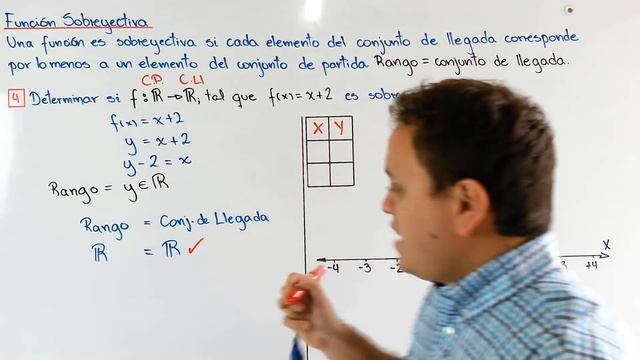 Función Sobreyectiva
Una función es sobreyectiva si cada elemento del conjunto de llegada corresponde
por lo menos a un elemento del conjunto de partida. Rango = conjunto de llegada.
C.P. C.Ll
4 Determinar si f: ℝ → ℝ, tal que f(x) = x+2 es
f(x) = x+2
y = x+2
y-2 = x
Rango = y ∈ ℝ
Rango = Conj. de Llegada
ℝ = ℝ ✓
X Y
X
-4 -3 +4